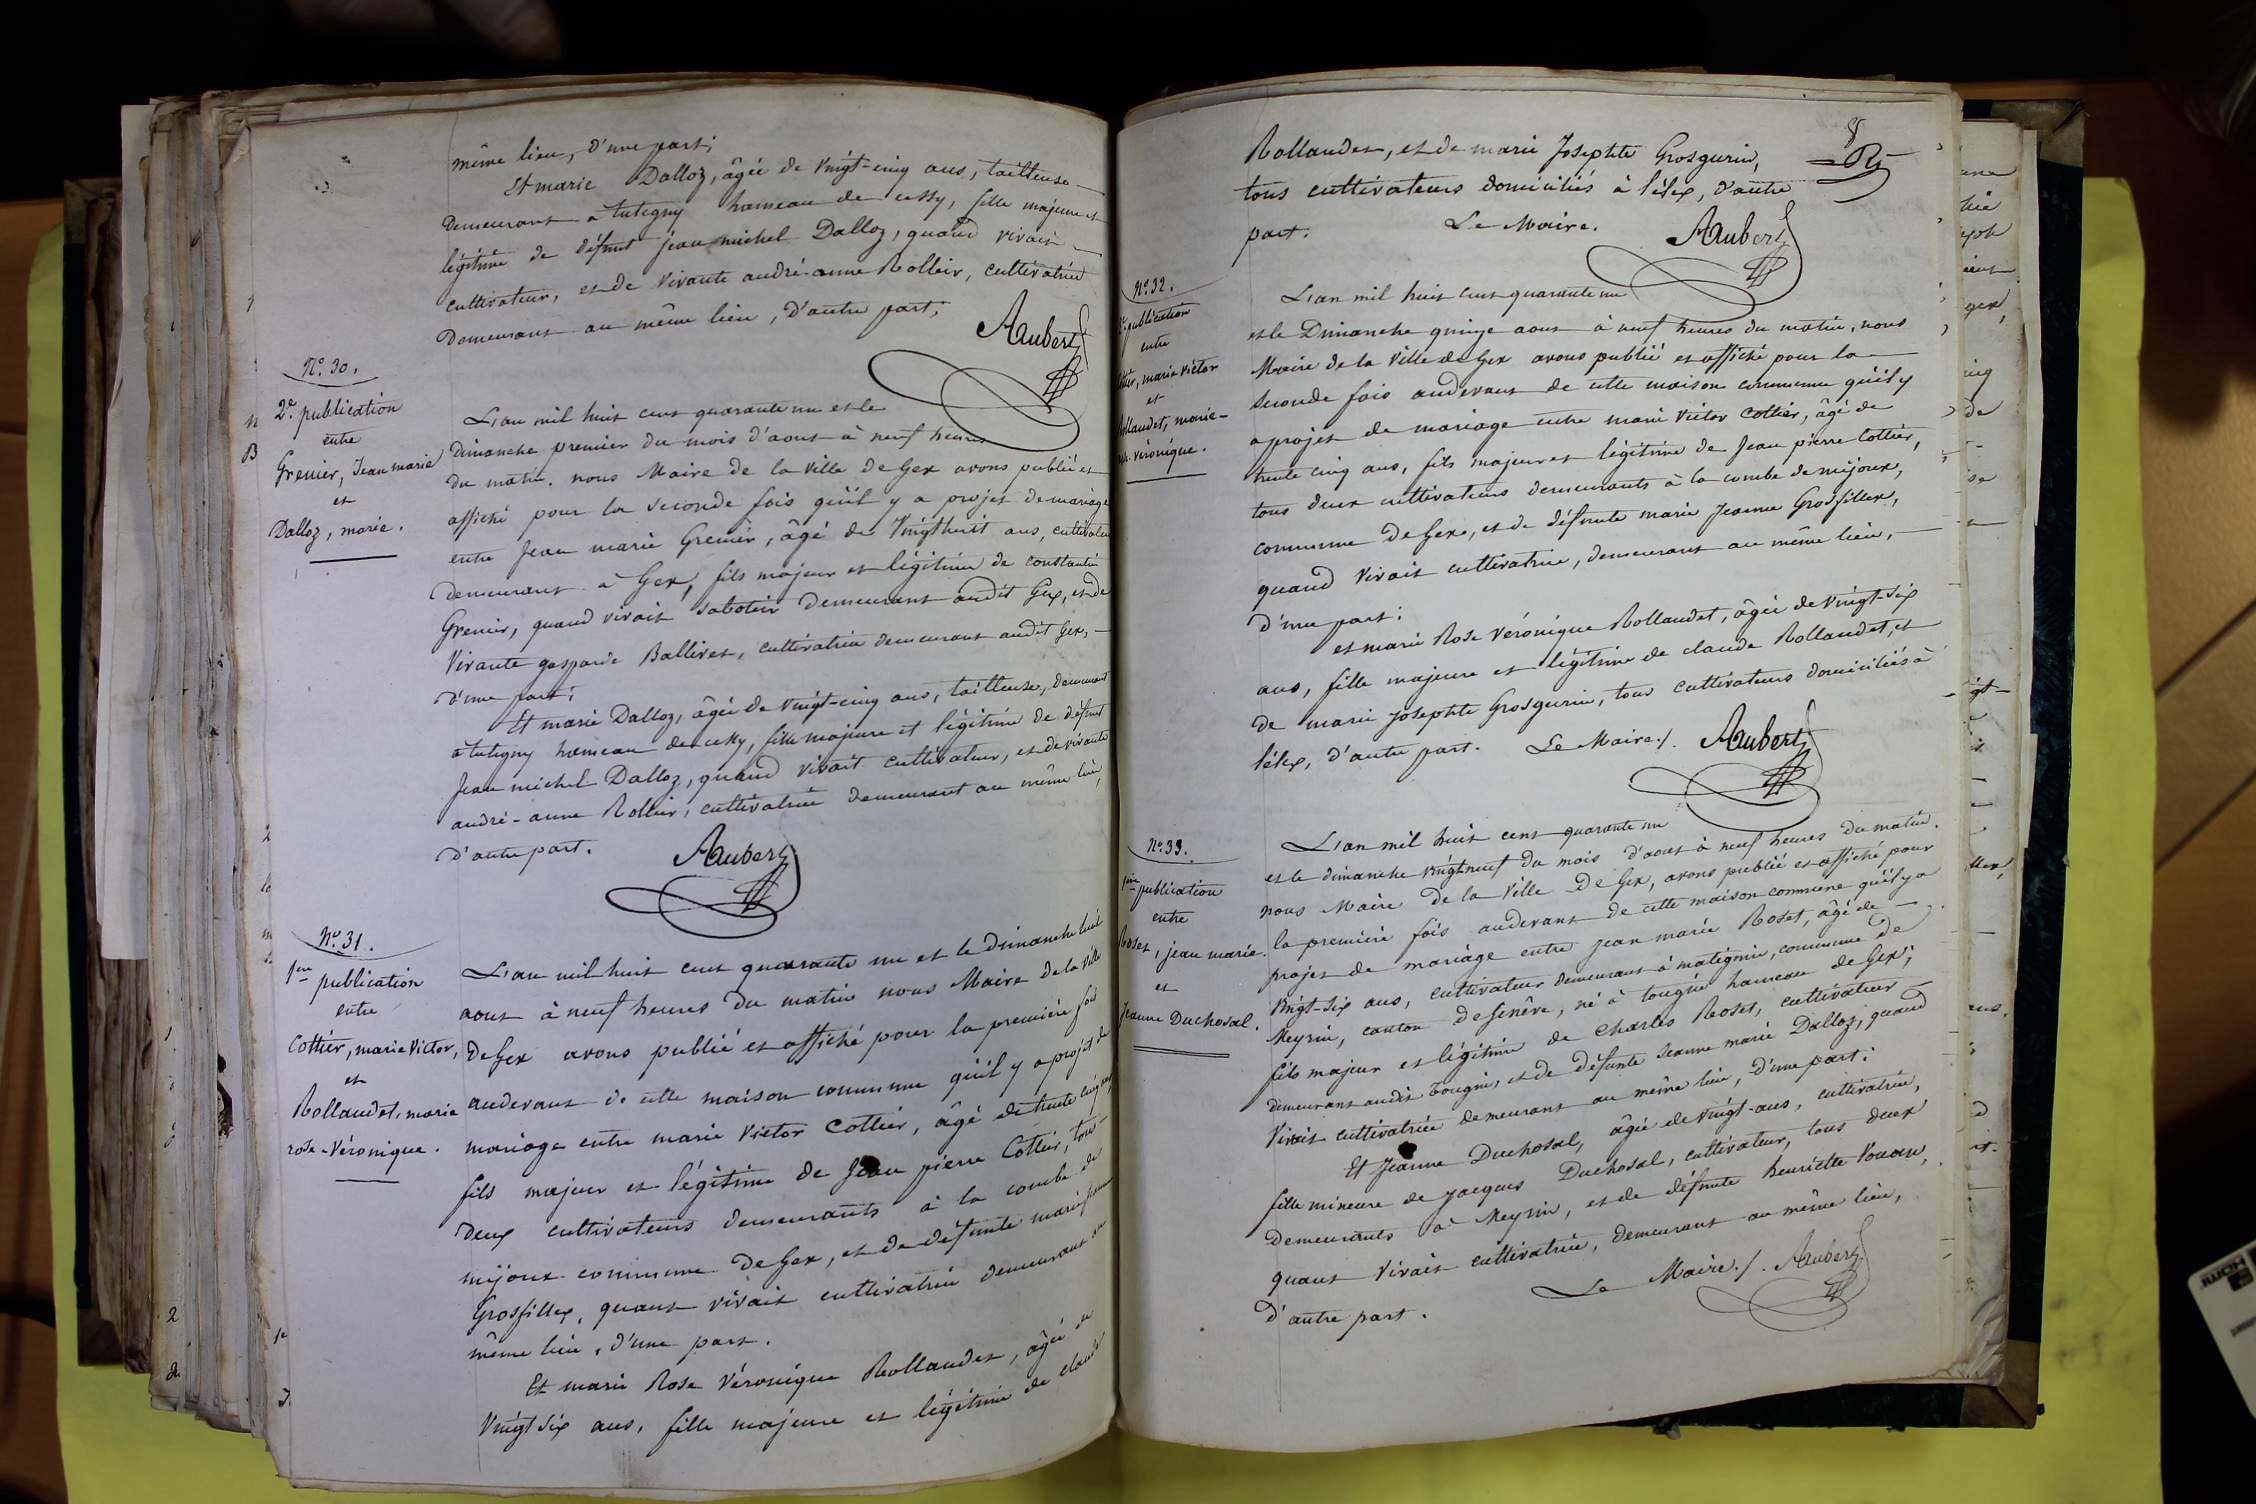 même lieu, d'une part;
Et marie Dalloz, âgée de vingt-cinq ans, tailleuse
demeurant a tutegny hameau de cessy, fille majeure et
légitime de défunt jean michel Dalloz, quand vivait
cultivateur, et de vivante andré-anne Rollier, cultivatrice
demeurant au même lieu, d'autre part;
Aubert
N°. 30.
2e. publication
entre
Grenier, Jean marie
et
Dalloz, marie.
L'an mil huit cent quarante un et le
dimanche premier du mois d'aout à neuf heures
du matin. nous Maire de la ville de Gex avons publié et
affiché pour la seconde fois qu'il y a projet de mariage
entre Jean marie Grenier, âgé de vingthuit ans, cultivateur
demeurant à Gex, fils majeur et légitime de constantin
Grenier, quand vivait sabotier demeurant audit Gex, et de
vivante gasparde Ballivet, cultivatrice demeurant audit Gex,
d'une part;
Et marie Dalloz, âgée de vingt-cinq ans, tailleuse, demeurant
a tutegny hameau de cessy, fille majeure et légitime de défunt
Jean michel Dalloz, quand vivait cultivateur, et de vivante
andré-anne Rollier, cultivatrice demeurant au même lieu,
d'autre part.
Aubert
N°. 31.
1ère publication
entre
Cottier, marie Victor,
et
Rollandet, marie
rose-Véronique.
L'an mil huit cent quarante un et le dimanche huit
aout à neuf heures du matin nous Maire de la ville
de Gex avons publié et affiché pour la première fois
audevant de cette maison commune qu'il y a projet de
mariage entre marie Victor Cottier, âgé de trente cinq ans,
fils majeur et légitime de Jean pierre Cottier, tous
deux cultivateurs demeurants à la combe de
mijoux commune de Gex, et de défunte marie jeanne
Grosfillex, quant vivait cultivatrice demeurant au
même lieu, d'une part.
Et marie Rose Véronique Rollandet, âgée de
vingt six ans, fille majeure et légitime de claude
8
Rollandet, et de marie Josephte Grosgurin,
tous cultivateurs domiciliés à lélex, d'autre
part. Le Maire.
Aubert
N°. 32.
publication
entre
Cottier, marie Victor
et
Rollandet, marie-
rose-véronique.
L'an mil huit cent quarante un
et le Dimanche quinze aout à neuf heures du matin, nous
Maire de la ville de Gex avons publié et affiché pour la
seconde fois audevant de cette maison commune qu'il y
a projet de mariage entre marie Victor Cottier, âgé de
trente cinq ans, fils majeur et légitime de Jean pierre Cottier,
tous deux cultivateurs demeurants à la combe de mijoux,
commune de Gex, et de défunte marie Jeanne Grosfillex,
quand vivait cultivatrice, demeurant au même lieu,
d'une part;
et marie Rose Véronique Rollandet, âgée de vingt-six
ans, fille majeure et légitime de claude Rollandet, et
de marie Josephte Grosgurin, tous cultivateurs domiciliés à
lélex, d'autre part. Le Maire./. Aubert
N°. 33.
1ère publication
entre
Roset, jean marie.
et
Jeanne Duchosal.
L'an mil huit cent quarante un
et le dimanche vingtneuf du mois d'aout à neuf heures du matin.
nous Maire de la ville de Gex, avons publié et affiché pour
la première fois audevant de cette maison commune qu'il y a
projet de mariage entre jean marie Roset, âgé de
vingt-six ans, cultivateur demeurant à mategnin, commune de
Meyrin, canton de Genêve, né à tougin hameau de Gex,
fils majeur et légitime de Charles Roset, cultivateur
demeurant audit Tougin, et de défunte Jeanne marie Dalloz, quand
vivait cultivatrice demeurant au même lieu, d'une part;
Et Jeanne Duchosal, âgée de vingt-ans, cultivatrice,
fille mineure de jacques Duchosal, cultivateur, tous deux
demeurants à Meyrin, et de défunte henriette
quant vivait cultivatrice, demeurant au même lieu,
d'autre part. Le Maire./. Aubert